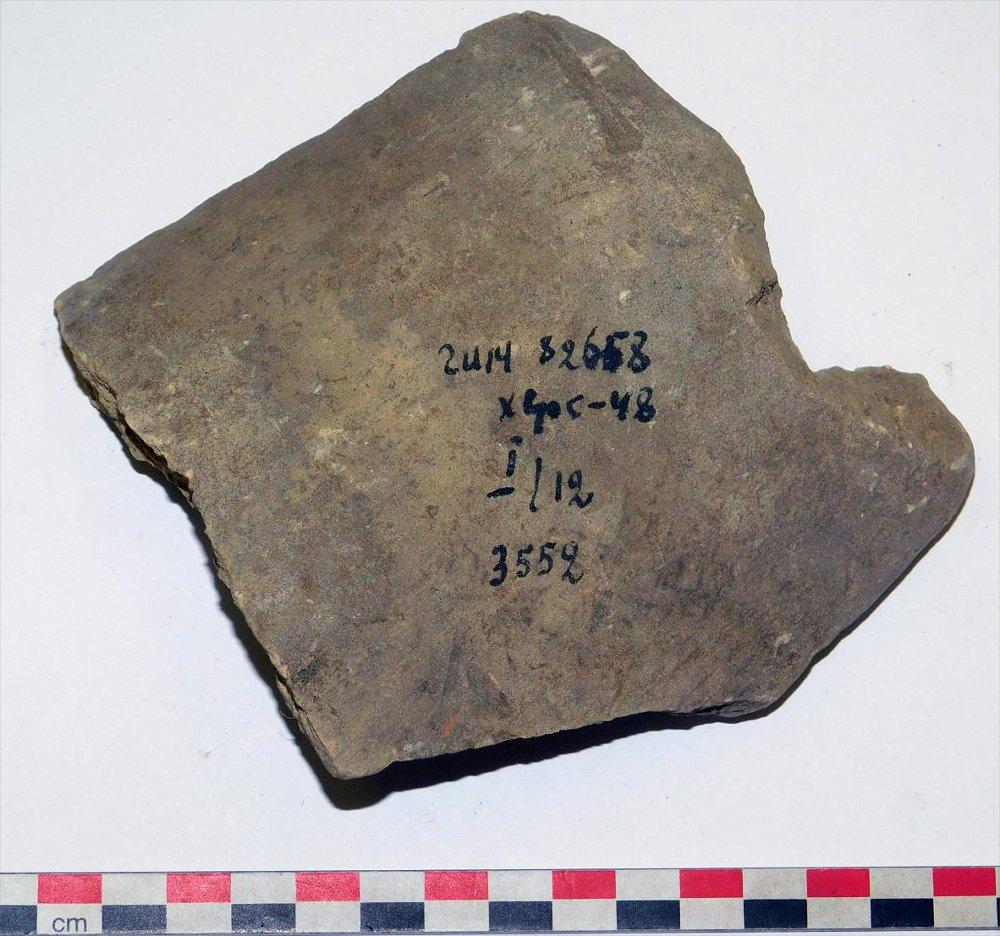 гим 82658
херс-48
I/12
3552
cm